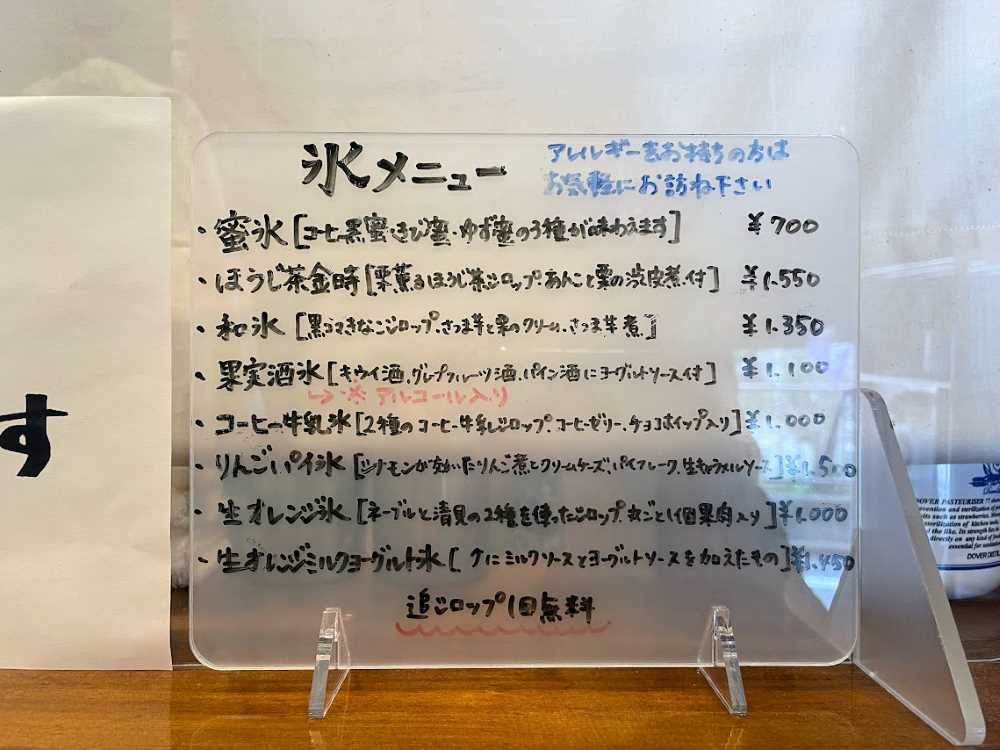 氷メニュー
アレルギーをお持ちの方は
お気軽にお訪ね下さい
・蜜氷[コーヒー黒蜜・きび蜜・ゆず蜜の3種が味わえます] ¥700
・ほうじ茶金時[栗薫るほうじ茶シロップ・あんこと栗の渋皮煮付] ¥1.550
・和氷[黒ゴマきなこシロップ、さつま芋と栗のクリーム、さつま芋煮] ¥1.350
・果実酒氷[キウイ酒、グレープフルーツ酒、パイン酒にヨーグルトソース付] ¥1.100
↳※アルコール入り
・コーヒー牛乳氷[2種のコーヒー牛乳シロップ、コーヒーゼリー、チョコホイップ入り] ¥1.000
・りんごパイ氷[シナモンが効いたりんご煮とクリームチーズ、パイフレーク、生キャラメルソース] ¥1.500
・生オレンジ氷[ネーブルと清見の2種を使ったシロップ、丸ごと1個果肉入り] ¥1.000
・生オレンジミルクヨーグルト氷[〃にミルクソースとヨーグルトソースを加えたもの] ¥1.450
追シロップ1回無料
す
DOVER PASTEURISER 77
sterilization of kitchen
the like. Its strength
directly on any kind of
essential for
DOVER